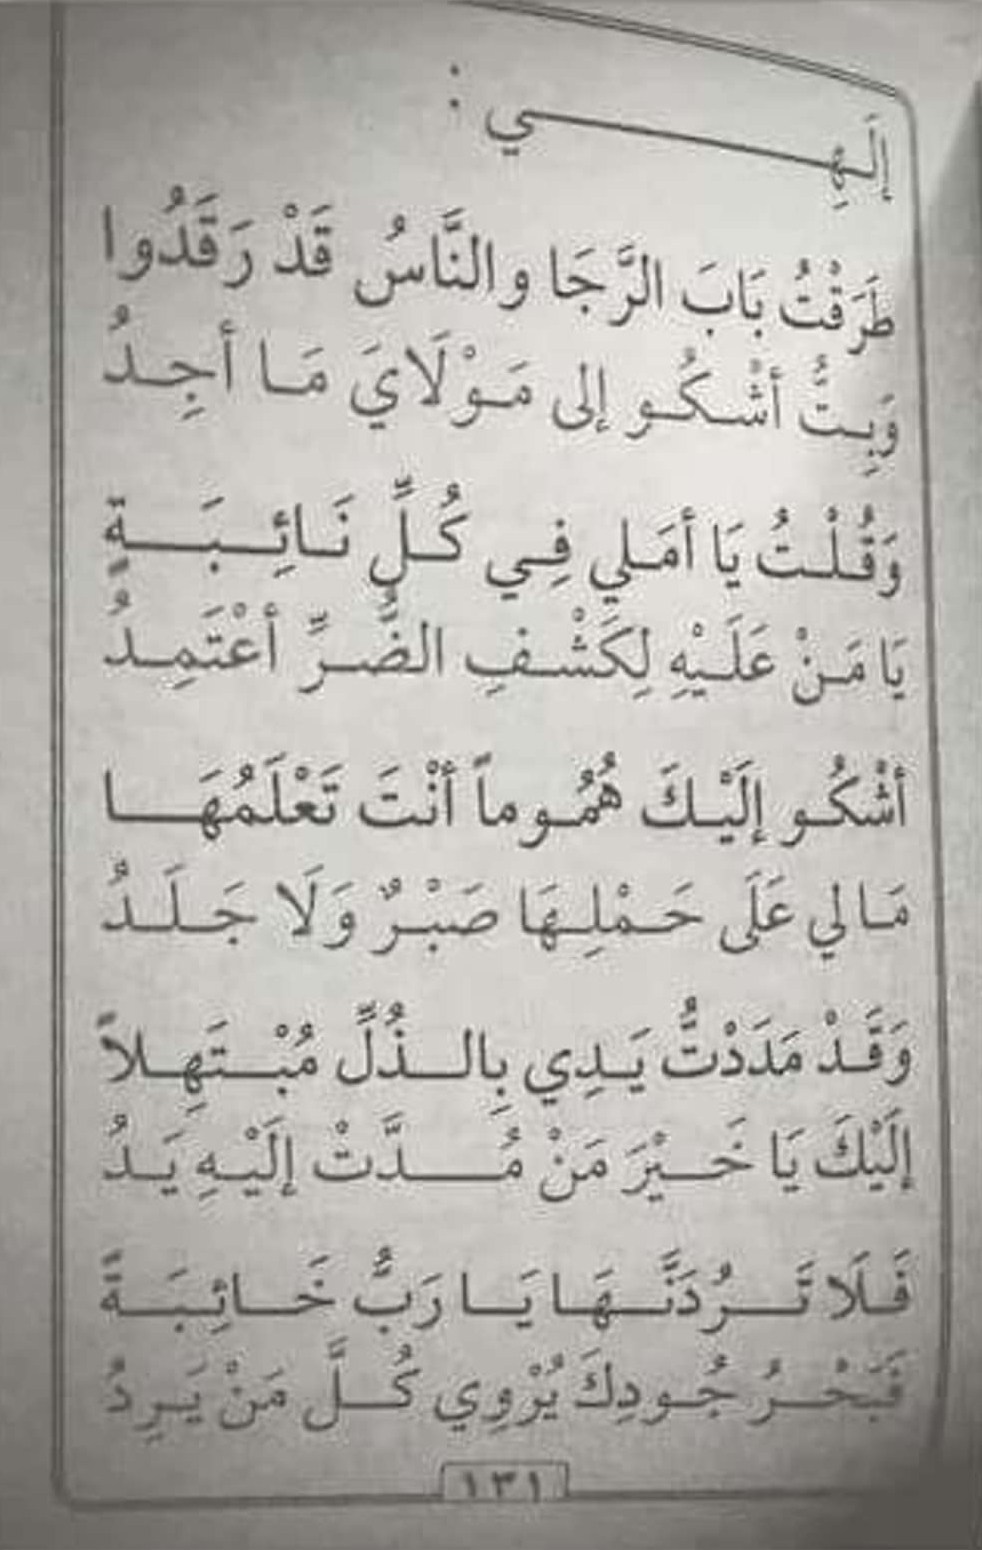 إِلَهِي :
طَرَقْتُ بَابَ الرَّجَا والنَّاسُ قَدْ رَقَدُوا
وَبِتُّ أشْكُو إلى مَوْلَايَ مَا أجِدُ
وَقُلْتُ يَا أمَلي فِي كُلِّ نَائِبَةٍ
يَا مَنْ عَلَيْهِ لِكَشْفِ الضُّرِّ أعْتَمِدُ
أشْكُو إلَيْكَ هُمُوماً أنْتَ تَعْلَمُهَا
مَا لي عَلَى حَمْلِهَا صَبْرٌ وَلَا جَلَدُ
وَقَدْ مَدَدْتُّ يَدِي بِالذُلِّ مُبْتَهِلاً
إلَيْكَ يَا خَيْرَ مَنْ مُدَّتْ إلَيْهِ يَدُ
فَلَا تَرُدَنَّهَا يَا رَبُّ خَائِبَةً
فَبَحْرُ جُودِكَ يُرْوِي كُلَّ مَنْ يَرِدُ
١٣١